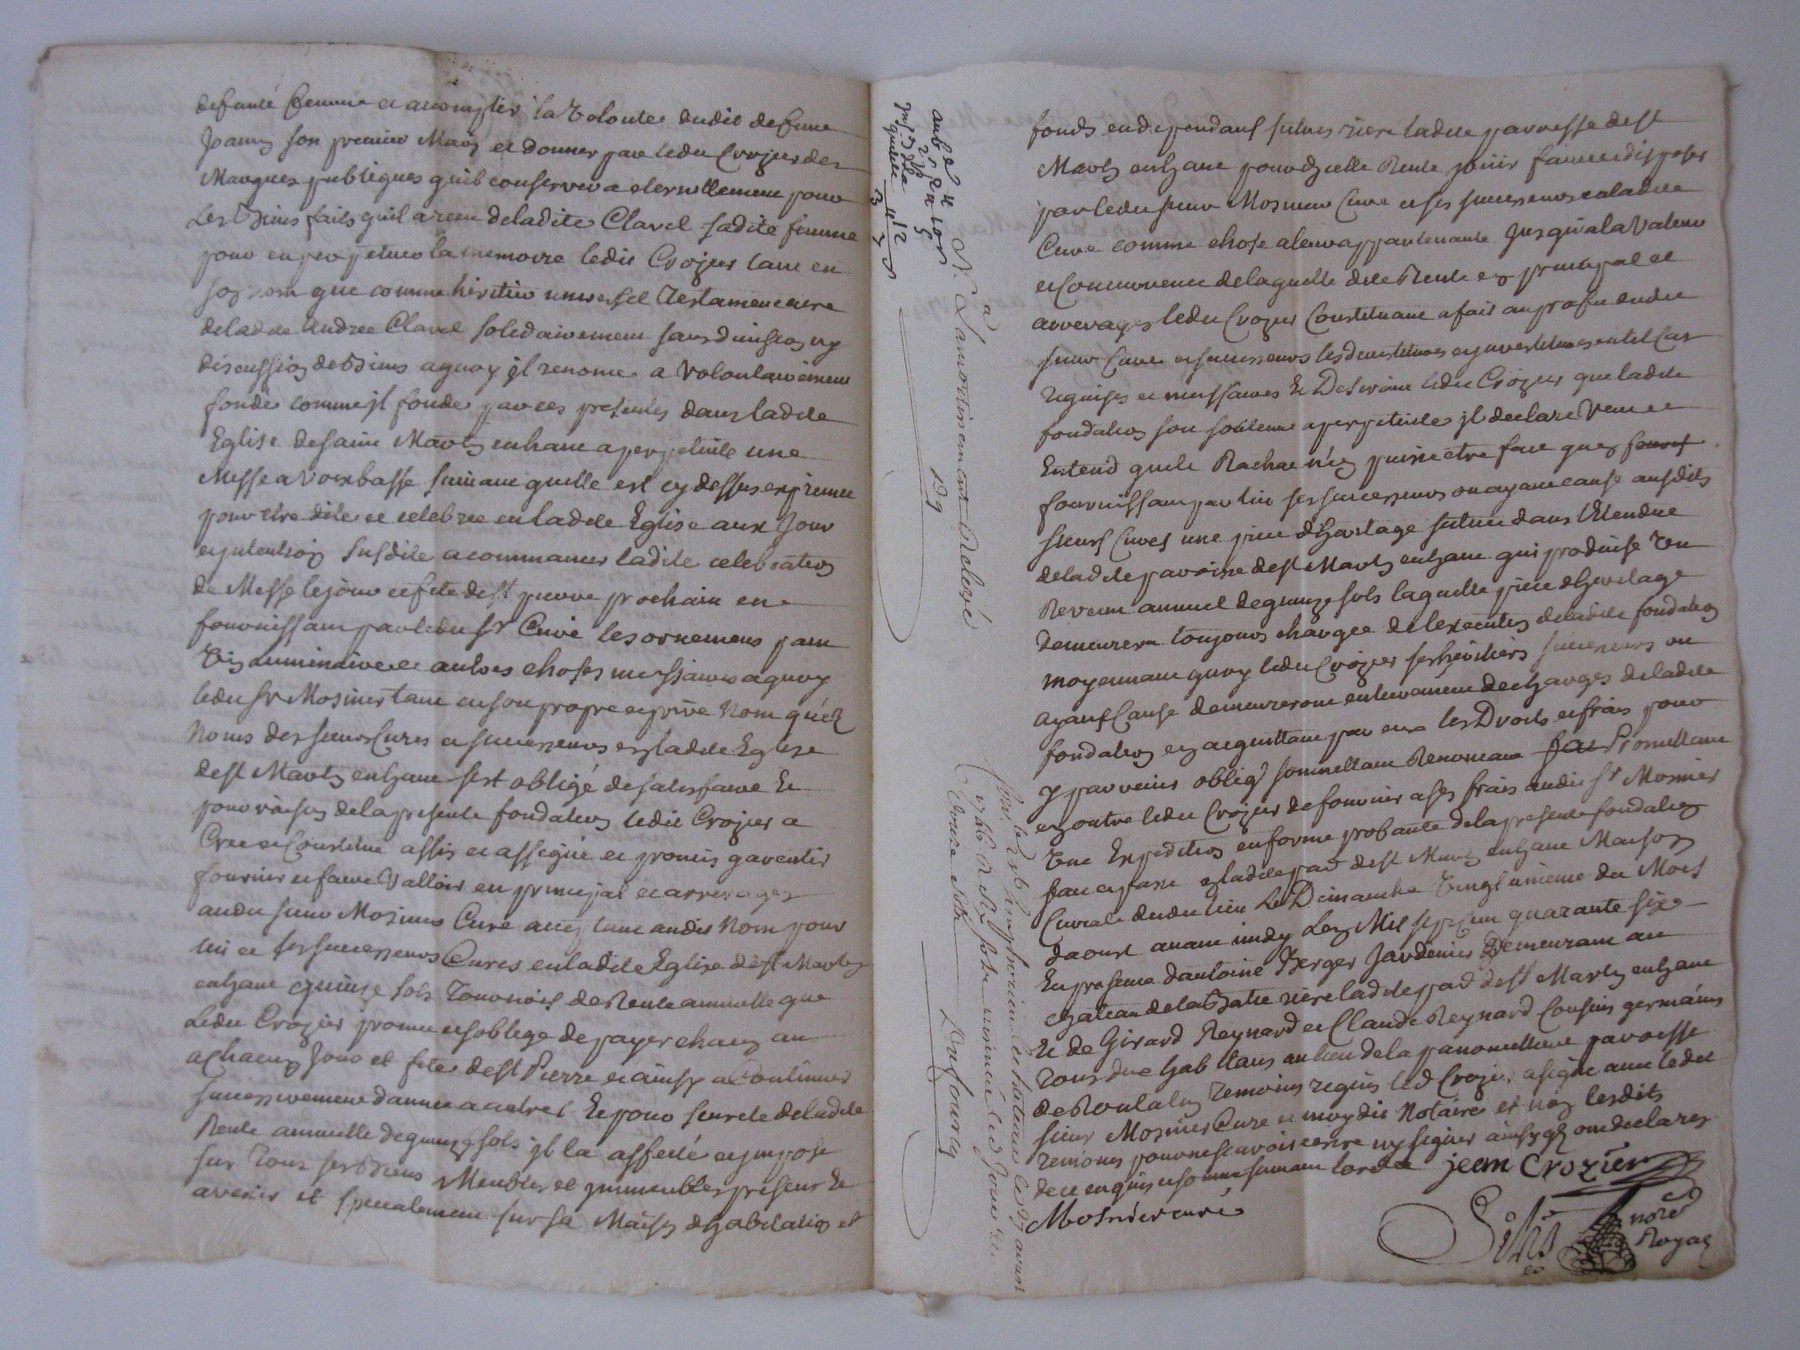 defunte femme et accomplir la Volonte dudit defunt
Jeanin son premier Mary et donner par ledit Crozier des
Marques publiques quil conservera eternellement pour
Les Biens faits quil a recu de ladite Clavel sadite femme
pour en perpetuer la memoire ledit Crozier tant en
son nom que comme heritier universel Testamentaire
de ladite Andree Clavel solidairement sans division ny
discussion de Biens a quoy jl renonce a Volontairement
fonde comme jl fonde par ces presentes dans ladite
Eglise de saint Martin en hault a perpetuite une
Messe a Voix basse suivant quelle est cy dessus exprimee
pour etre dite et celebree en ladite Eglise aux Jour
et jntention susdite a commancer ladite celebration
de Messe le jour et fete de st pierre prochain en
fournissant par ledit sr Curé les ornemens pain
Vin luminaire et autres choses necessaires a quoy
ledit sr Mosnier tant en son propre et privé Nom qu'es
Noms des sieurs Curés et successeurs en ladite Eglise
de st Martin en hault sest obligé de satisfaire Et
pour raison de la presente fondation ledit Crozier a
Créé et Constitué assis et assigné et promis garentir
fournir et faire Valloir en principal et arrerages
audit sieur Mosnier Curé acceptant audit Nom pour
lui et ses successeurs Curés en ladite Eglise de st Martin
en haut quinze sols Tournois de Rente annuelle que
Ledit Crozier promet et soblige de payer chacun an
a chacun Jour et fete de st Pierre et ainsy a Continuer
successivement dannee a autre Et pour seureté de ladite
Rente annuelle de quinze sols jl la affecté et jmposé
sur Tous ses Biens Meubles et jmmeubles presens Et
avenir et specialement sur sa Maison dhabitation et
N.a Lamortissement Declaré
Dufournel
fonds en dependans situés riere ladite parroisse de st
Martin en hault pour dicelle Rente jouir faire et disposer
par ledit sieur Mosnier Curé et ses successeurs a ladite
Cure comme chose a leur appartenante Jusqu'a la Valeur
et Concurrence de laquelle dite Rente en principal et
arrerages ledit Crozier Constituant a fait au profit dudit
sieur Curé et successeurs les devestitures et jnvestitures en tel Cas
requises et necessaires Et Desirant ledit Crozier que ladite
fondation soit soutenue a perpetuité jl declare Veut et
Entend que le Rachat n'en puisse etre fait qu'en
fournissant par lui ses successeurs ou ayant cause ausdits
sieurs Curés une piece dheritage située dans l'Etendue
de ladite paroisse de st Martin en haut qui produise Un
Revenu annuel de quinze sols laquelle piece dheritage
demeurera toujours chargée de lexecution de ladite fondation
moyennant quoy ledit Crozier ses heritiers successeurs ou
ayans Cause demeureront entierement dechargés de ladite
fondation en acquittant par eux les Droits et frais pour
y parvenir obligé soumettant Renonceant Promettant
en outre ledit Crozier de fournir a ses frais audit sr Mosnier
Une Expedition en forme probante de la presente fondation
fait et passé en ladite parr de st Martin en haut Maison
Curiale dudit lieu Le Dimanche Vingt unieme du Mois
daoust avant midy Lan Mil sept cent quarante six
En presence dantoine Berger Jardinier Demeurant au
chateau de la Batie riere ladite parr de st Martin en haut
Et de Girard Reynard et Claude Reynard Cousins germains
Tous deux habitans au lieu de la panonnetiere paroisse
de Rontalon Temoins requis led Crozier a signé avec ledit
sieur Mosnier Curé et moy dit Notaire et non lesdits
temoins pour ne scavoir ecrire ny signer ainsy qu'ils ont declarés
de ce enquis et sommés suivant lord.ce jean Crozier
Mosnier curé
nore
Royal